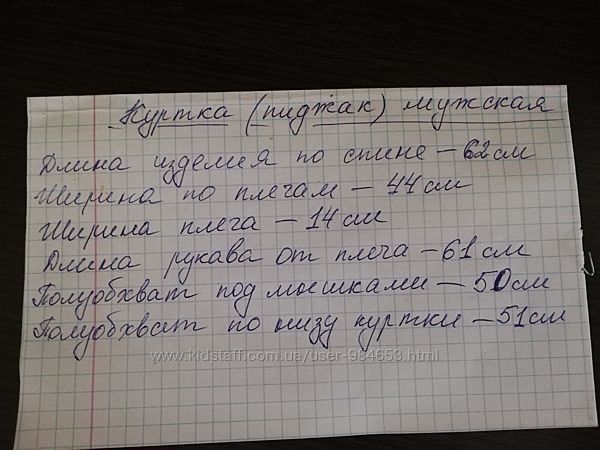 Куртка (пиджак) мужская
Длина изделия по спине – 62 см
Ширина по плечам – 44 см
Ширина плеча – 14 см
Длина рукава от плеча – 61 см
Полуобхват под мышками – 50 см
Полуобхват по низу куртки – 51 см
www.kidstaff.com.ua/user-984653.html